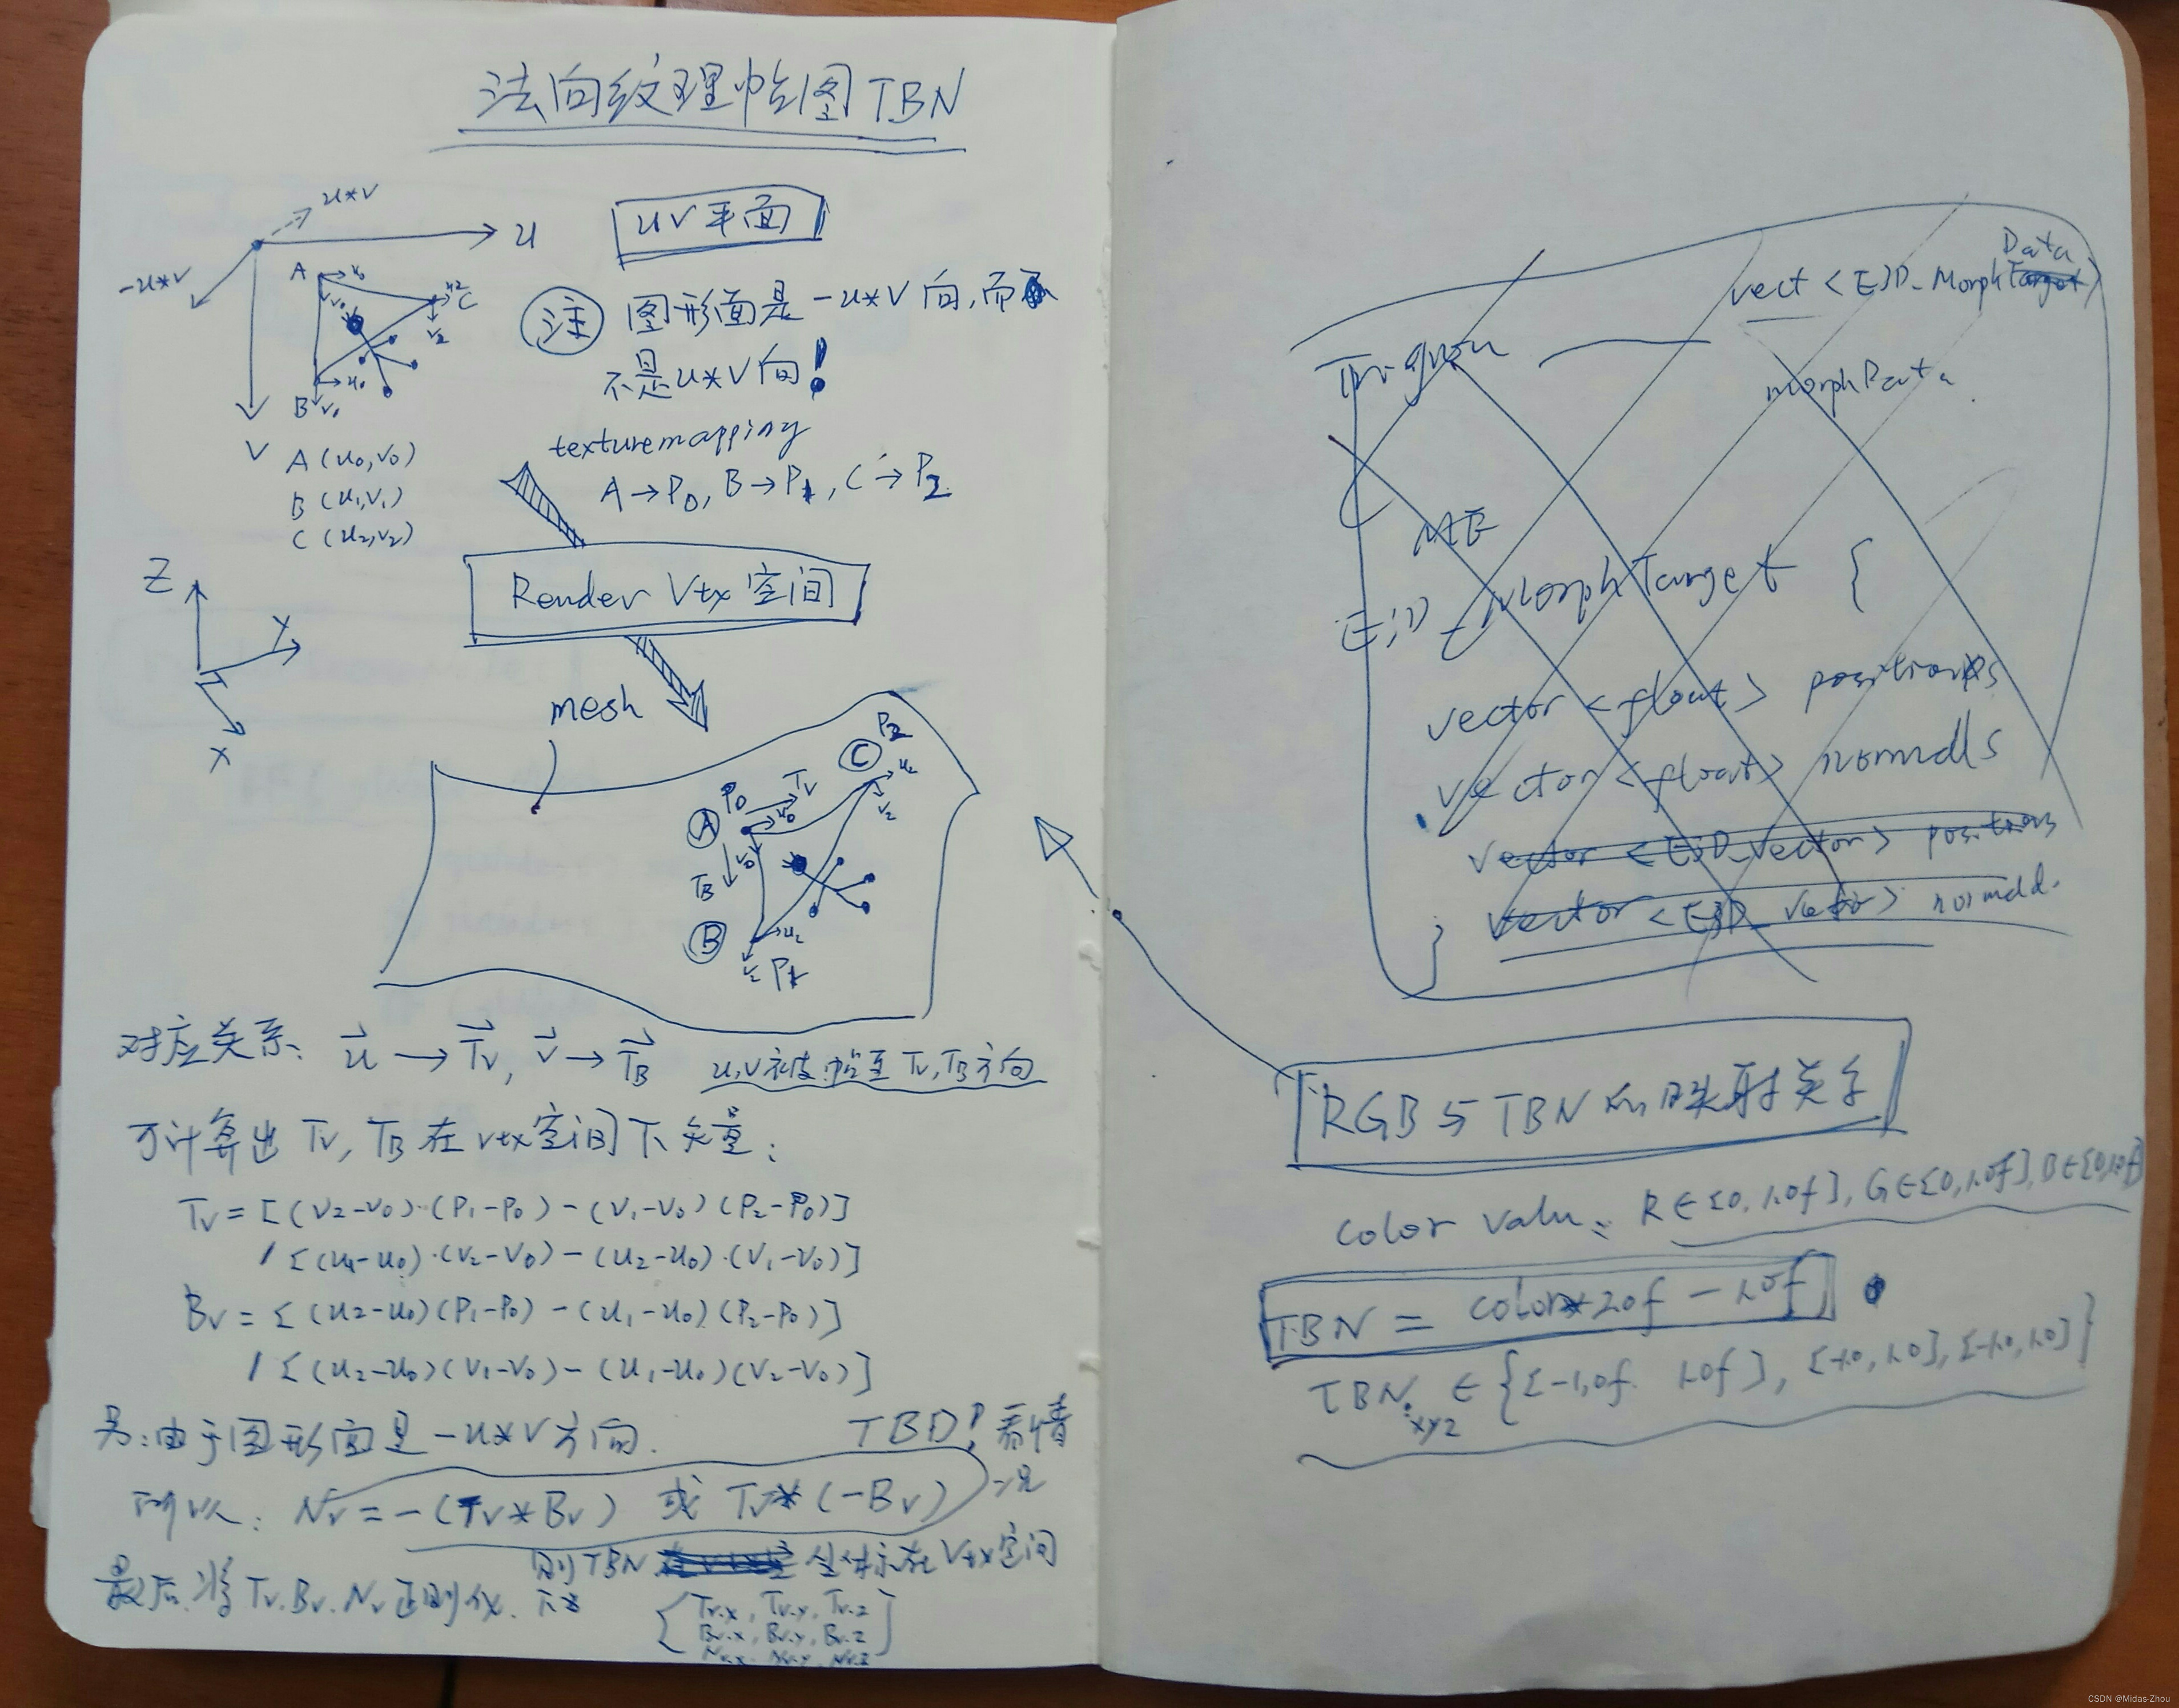 法向纹理帖图TBN
u*v
u
UV平面
-u*v
A u₀
u₂ C
v₀
v₂
u₁
B v₁
v
注 图形面是-u*v向,而
不是u*v向!
A (u₀,v₀)
B (u₁,v₁)
C (u₂,v₂)
texturemapping
A→P₀, B→P₁, C→P₂
Render Vtx空间
Z
Y
X
mesh
P₂
C
u₂
v₂
P₀ Tv
A u₀
v₀
TB
B
P₁
对应关系: u → Tv, v → TB u,v被帖至Tv,TB方向
可计算出 Tv, TB 在vtx空间下矢量:
Tv = [(v₂-v₀)·(P₁-P₀) - (v₁-v₀)(P₂-P₀)]
/ [(u₁-u₀)·(v₂-v₀) - (u₂-u₀)·(v₁-v₀)]
Bv = [(u₂-u₀)(P₁-P₀) - (u₁-u₀)(P₂-P₀)]
/ [(u₂-u₀)(v₁-v₀) - (u₁-u₀)(v₂-v₀)]
另:由于图形面是-u*v方向. TBD! 看情
况
所以: Nv = -(Tv*Bv) 或 Tv*(-Bv)
最后,将Tv.Bv.Nv正则化.
则TBN 坐标系在Vtx空间
下
Tv.x, Tv.y, Tv.z
Bv.x, Bv.y, Bv.z
Nv.x, Nv.y, Nv.z
Data
vect <E3D_MorphTarget>
morphData
ME
E3D_MorphTarget {
vector <float> positions
vector <float> normals
vector <E3D_Vector> positions
vector <E3D_Vector>
}
RGB与TBN的映射关系
color value: R∈[0,1.0f], G∈[0,1.0f], B∈[0,1.0f]
TBN = color*2.0f - 1.0f
TBN.xyz ∈ {[-1.0f, 1.0f], [-1.0, 1.0], [-1.0, 1.0]}
CSDN @Midas-Zhou